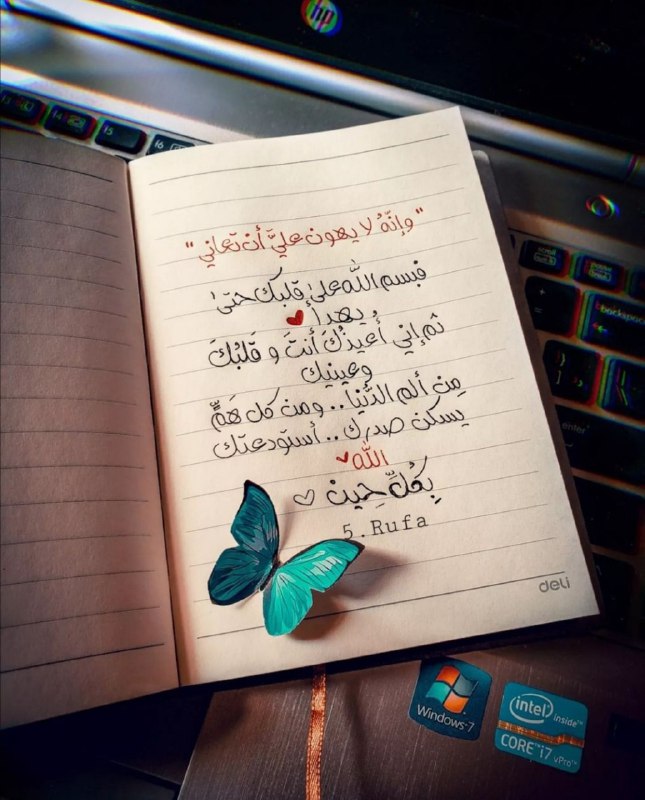 hp
13
14
15
16
"وإنّهُ لا يهون عليَّ أن تعاني"
فبسم الله على قلبك حتىٰ
يهدأ
ثم إني أُعيذُكَ أنتَ و قَلبُكَ
وعينيك
مِن ألم الدّنيا.. ومن كل هَمٍّ
يسكن صدرك.. أستودعتك
الله
بِكُلِّ حِينٍ
5.Rufa
deli
scroll
lock
pause
backspace
enter
Windows 7
intel inside™
CORE™ i7
vPro™